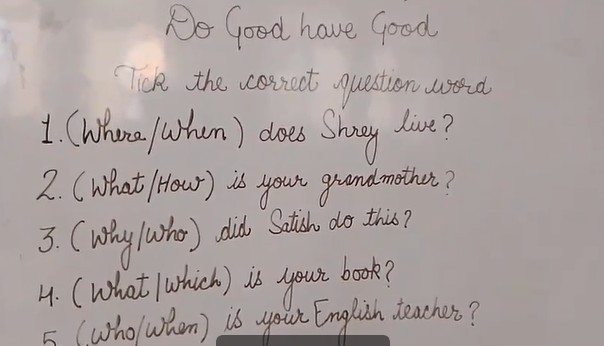 Do Good have Good
Tick the correct question word
1. (Where/When) does Shrey live?
2. (What/How) is your grandmother?
3. (Why/Who) did Satish do this?
4. (What/which) is your book?
5. (Who/When) is your English teacher?